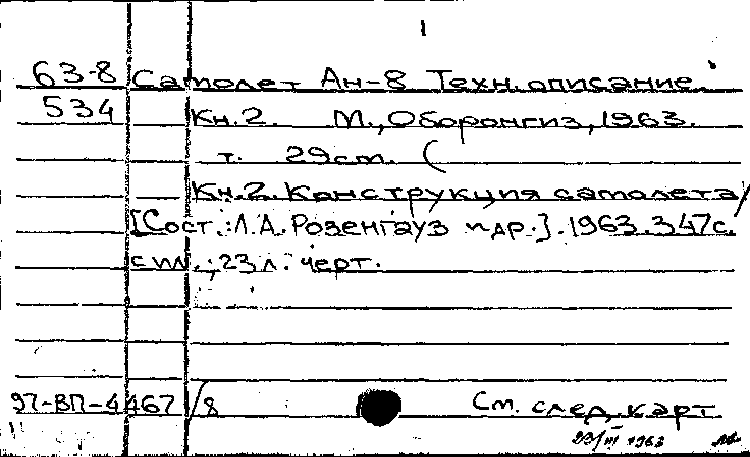 1
63-8 Самолет Ан-8 Техн. описание.
534 Кн. 2. М., Оборонгиз, 1963.
т. 29см. (
Кн. 2. Конструкция самолета/
[Сост.: Л.А. Розенгауз и др.]. 1963. 347с.
с ил.; 23 л. черт.
97-ВП-4467/8 См. след. карт.
29/III 1963